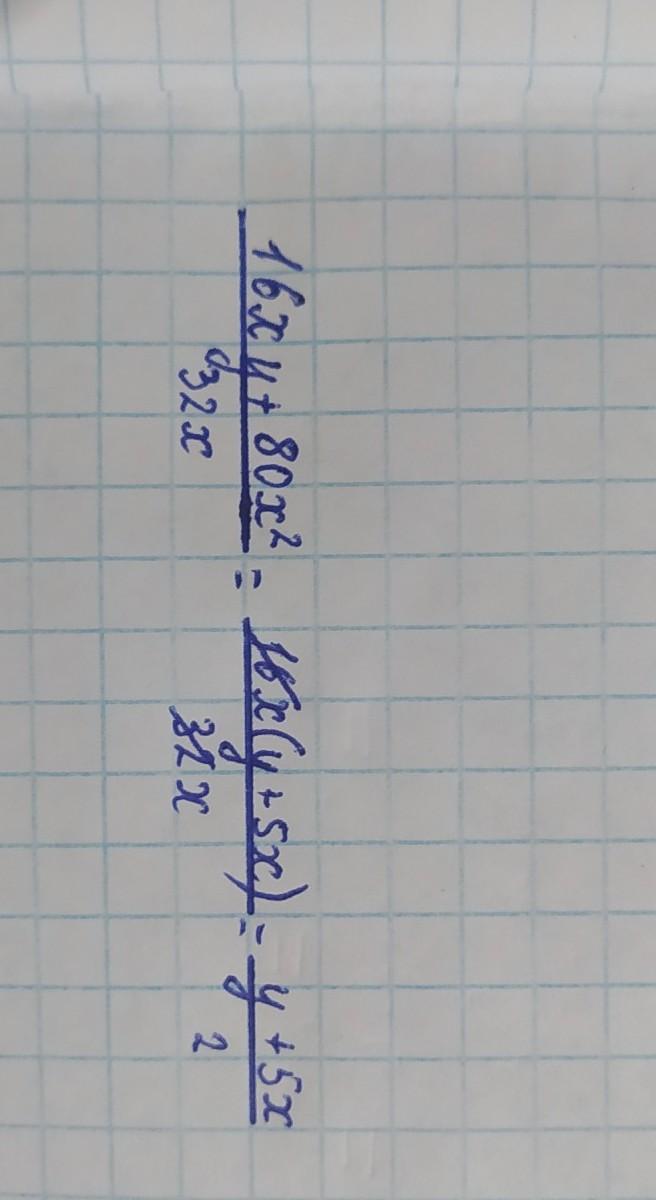 16xy + 80x² / 32x = 16x(y + 5x) / 32x = y + 5x / 2